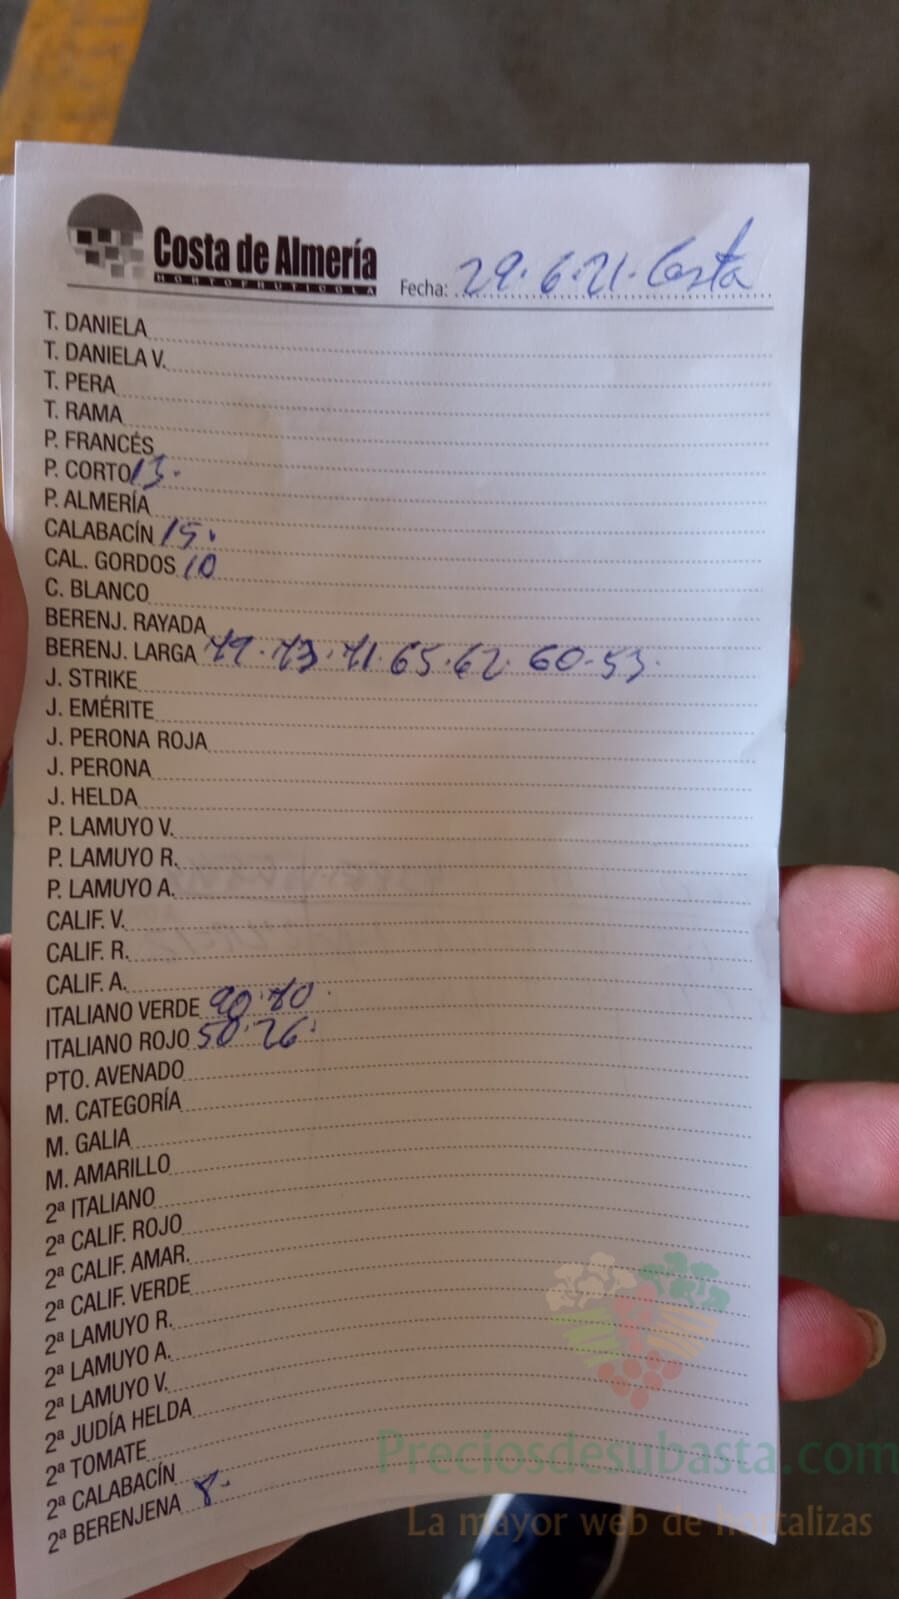 Costa de Almería
HORTOFRUTICOLA
Fecha: 29.6.21. Costa
T. DANIELA
T. DANIELA V.
T. PERA
T. RAMA
P. FRANCÉS
P. CORTO 13.
P. ALMERÍA
CALABACÍN 15.
CAL. GORDOS 10
C. BLANCO
BERENJ. RAYADA
BERENJ. LARGA 79. 73. 71. 65. 62. 60. 53.
J. STRIKE
J. EMÉRITE
J. PERONA ROJA
J. PERONA
J. HELDA
P. LAMUYO V.
P. LAMUYO R.
P. LAMUYO A.
CALIF. V.
CALIF. R.
CALIF. A.
ITALIANO VERDE 90. 70.
ITALIANO ROJO 50. 26.
PTO. AVENADO
M. CATEGORÍA
M. GALIA
M. AMARILLO
2ª ITALIANO
2ª CALIF. ROJO
2ª CALIF. AMAR.
2ª CALIF. VERDE
2ª LAMUYO R.
2ª LAMUYO A.
2ª LAMUYO V.
2ª JUDÍA HELDA
2ª TOMATE
2ª CALABACÍN
2ª BERENJENA 8.
Preciosdesubasta.com
La mayor web de hortalizas